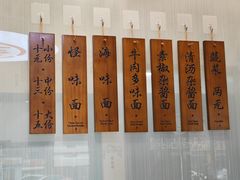 蔬菜 两元
清汤杂酱面
素椒杂酱面
牛肉多味面
海味面
怪味面
小份·中份·大份
十元·十三·十五